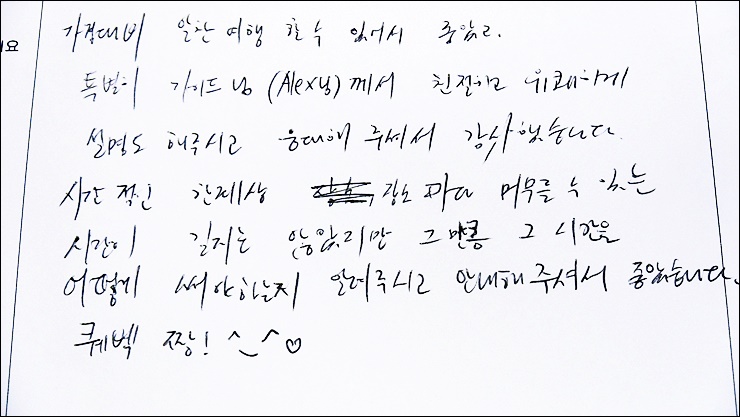 가격대비 알찬 여행 할 수 있어서 좋았고.
특별히 가이드님 (Alex님)께서 친절하고 유쾌하게
설명도 해주시고 응대해 주셔서 감사했습니다.
시간 적인 한계상 장소 마다 머무를 수 있는
시간이 길지는 않았지만 그 만큼 그 시간을
어떻게 써야하는지 알려주시고 안내해 주셔서 좋았습니다.
퀘벡 짱! ^_^♡